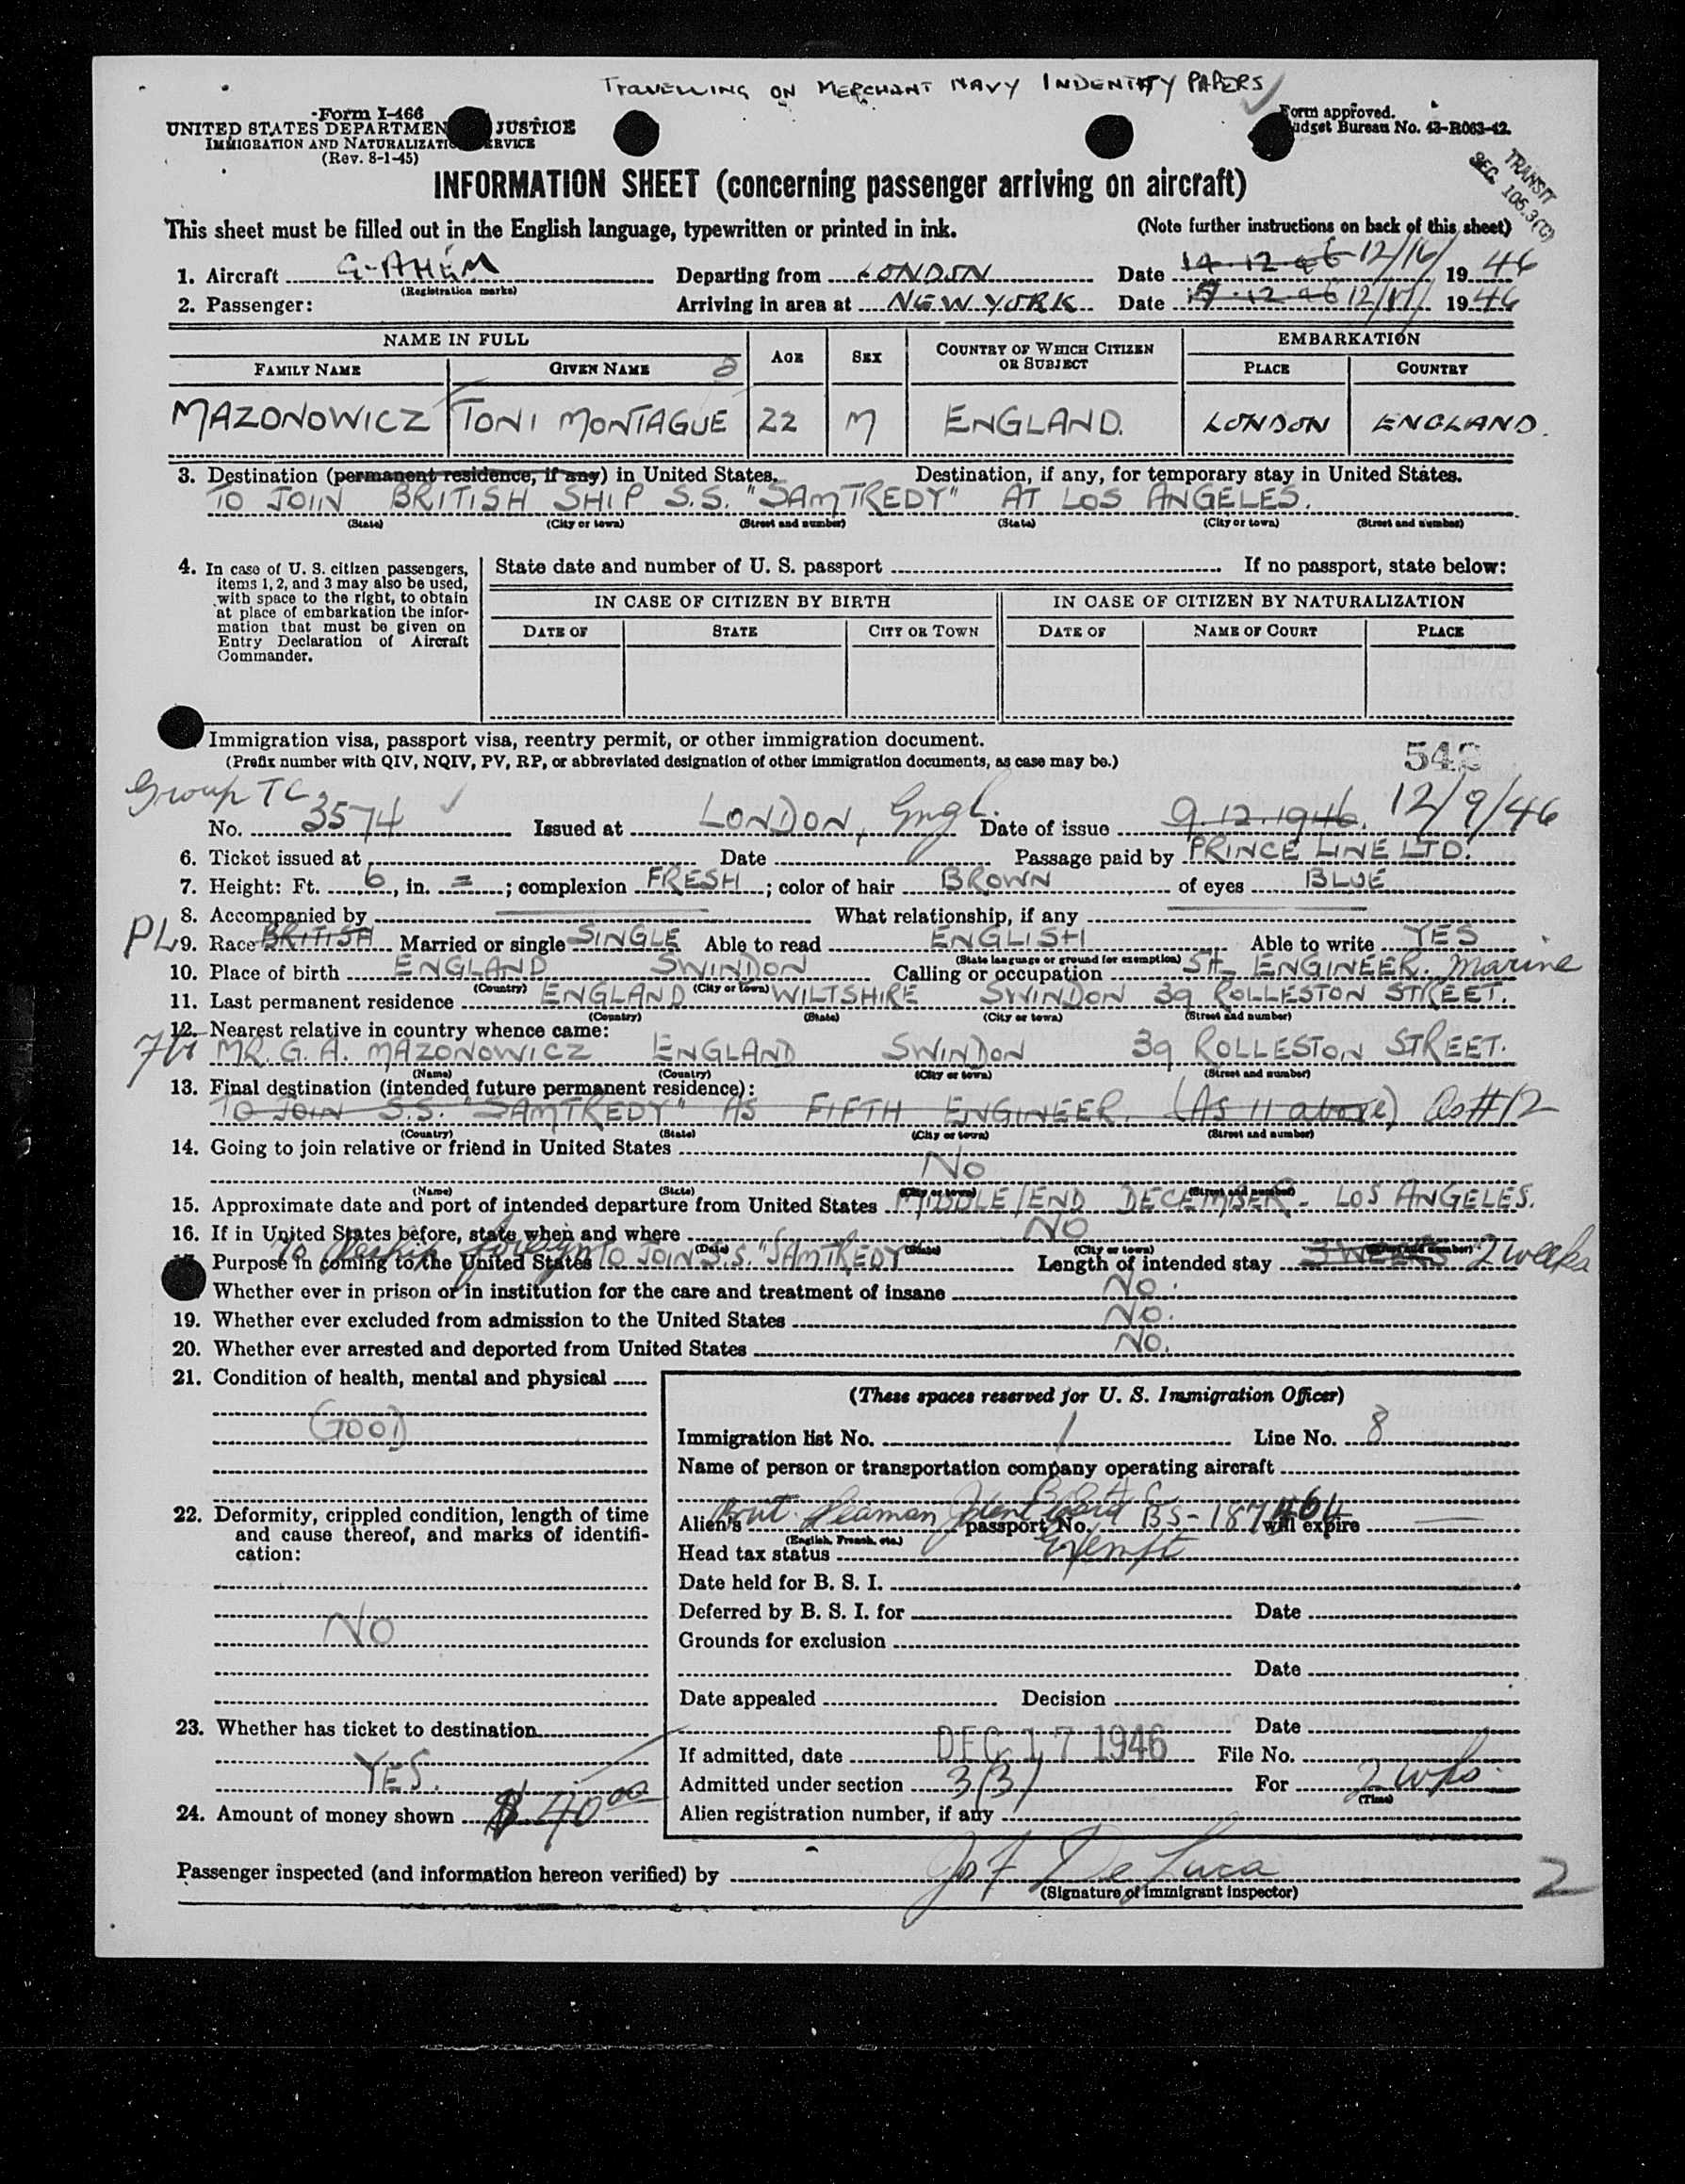 TRAVELLING ON MERCHANT NAVY INDENTITY PAPERS
Form I-466
UNITED STATES DEPARTMEN JUSTICE
IMMIGRATION AND NATURALIZATI ERVICE
(Rev. 8-1-45)
Form approved.
udget Bureau No. 43-R063-42.
TRANSIT
SEC. 105.3(C)
INFORMATION SHEET (concerning passenger arriving on aircraft)
This sheet must be filled out in the English language, typewritten or printed in ink. (Note further instructions on back of this sheet)
1. Aircraft G-AHEM Departing from LONDON Date 14.12.46 12/16/ 1946
(Registration marks)
2. Passenger: Arriving in area at NEW YORK Date 12.46 12/17/ 1946
NAME IN FULL AGE SEX COUNTRY OF WHICH CITIZEN OR SUBJECT EMBARKATION
FAMILY NAME GIVEN NAME PLACE COUNTRY
MAZONOWICZ TONI MONTAGUE 22 M ENGLAND. LONDON ENGLAND.
3. Destination (permanent residence, if any) in United States. Destination, if any, for temporary stay in United States.
TO JOIN BRITISH SHIP S.S. "SAMTREDY" AT LOS ANGELES.
(State) (City or town) (Street and number) (State) (City or town) (Street and number)
4. In case of U. S. citizen passengers, items 1, 2, and 3 may also be used, with space to the right, to obtain at place of embarkation the information that must be given on Entry Declaration of Aircraft Commander.
State date and number of U. S. passport If no passport, state below:
IN CASE OF CITIZEN BY BIRTH IN CASE OF CITIZEN BY NATURALIZATION
DATE OF STATE CITY OR TOWN DATE OF NAME OF COURT PLACE
Immigration visa, passport visa, reentry permit, or other immigration document.
(Prefix number with QIV, NQIV, PV, RP, or abbreviated designation of other immigration documents, as case may be.)
Group TC
No. 3574 Issued at LONDON, Engl. Date of issue 9.12.1946. 12/9/46
6. Ticket issued at Date Passage paid by PRINCE LINE LTD.
7. Height: Ft. 6, in. =; complexion FRESH; color of hair BROWN of eyes BLUE
8. Accompanied by What relationship, if any
PL 9. Race BRITISH Married or single SINGLE Able to read ENGLISH Able to write YES
(State language or ground for exemption)
10. Place of birth ENGLAND SWINDON Calling or occupation 5th ENGINEER. Marine
(Country) (City or town)
11. Last permanent residence ENGLAND WILTSHIRE SWINDON 39 ROLLESTON STREET.
(Country) (State) (City or town) (Street and number)
12. Nearest relative in country whence came:
MR. G. A. MAZONOWICZ ENGLAND SWINDON 39 ROLLESTON STREET.
(Name) (Country) (City or town) (Street and number)
13. Final destination (intended future permanent residence):
TO JOIN S.S. "SAMTREDY" AS FIFTH ENGINEER. (AS 11 above) As #12
(Country) (State) (City or town) (Street and number)
14. Going to join relative or friend in United States
NO
(Name) (State) (City or town) (Street and number)
15. Approximate date and port of intended departure from United States MIDDLE/END DECEMBER - LOS ANGELES.
16. If in United States before, state when and where NO
(Date) (State) (City or town) (Street and number)
To Reship foreign
Purpose in coming to the United States TO JOIN S.S. "SAMTREDY Length of intended stay 3 WEEKS 2 weeks
Whether ever in prison or in institution for the care and treatment of insane No.
19. Whether ever excluded from admission to the United States No.
20. Whether ever arrested and deported from United States No.
21. Condition of health, mental and physical
GOOD
22. Deformity, crippled condition, length of time and cause thereof, and marks of identification:
NO
23. Whether has ticket to destination
YES.
24. Amount of money shown $ 40 00
(These spaces reserved for U. S. Immigration Officer)
Immigration list No. 1 Line No. 8
Name of person or transportation company operating aircraft
B.O.A.C.
Alien's Brit. Seaman Ident Card passport No. BS-187 will expire
(English, French, etc.)
Head tax status Exempt
Date held for B. S. I.
Deferred by B. S. I. for Date
Grounds for exclusion
Date
Date appealed Decision
Date
If admitted, date DEC 17 1946 File No.
Admitted under section 3(3) For 2 wks.
(Time)
Alien registration number, if any
Passenger inspected (and information hereon verified) by Jos F De Luca
(Signature of immigrant inspector)
2